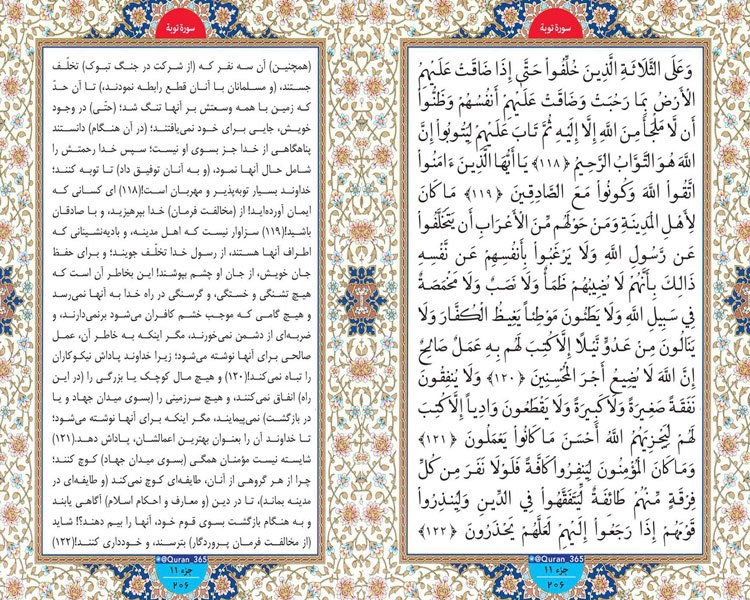 سورهٔ توبة
وَعَلَى الثَّلَاثَةِ الَّذِينَ خُلِّفُوا۟ حَتَّىٰ إِذَا ضَاقَتْ عَلَيْهِمُ
الْأَرْضُ بِمَا رَحُبَتْ وَضَاقَتْ عَلَيْهِمْ أَنْفُسُهُمْ وَظَنُّوا۟
أَن لَّا مَلْجَأَ مِنَ اللَّهِ إِلَّا إِلَيْهِ ثُمَّ تَابَ عَلَيْهِمْ لِيَتُوبُوا۟ إِنَّ
اللَّهَ هُوَ التَّوَّابُ الرَّحِيمُ ﴿۱۱۸﴾ يَا أَيُّهَا الَّذِينَ ءَامَنُوا۟
اتَّقُوا۟ اللَّهَ وَكُونُوا۟ مَعَ الصَّادِقِينَ ﴿۱۱۹﴾ مَا كَانَ
لِأَهْلِ الْمَدِينَةِ وَمَنْ حَوْلَهُم مِّنَ الْأَعْرَابِ أَن يَتَخَلَّفُوا۟
عَن رَّسُولِ اللَّهِ وَلَا يَرْغَبُوا۟ بِأَنفُسِهِمْ عَن نَّفْسِهِ
ذَالِكَ بِأَنَّهُمْ لَا يُصِيبُهُمْ ظَمَأٌ وَلَا نَصَبٌ وَلَا مَخْمَصَةٌ
فِي سَبِيلِ اللَّهِ وَلَا يَطَئُونَ مَوْطِئًا يَغِيظُ الْكُفَّارَ وَلَا
يَنَالُونَ مِنْ عَدُوٍّ نَّيْلًا إِلَّا كُتِبَ لَهُم بِهِ عَمَلٌ صَالِحٌ
إِنَّ اللَّهَ لَا يُضِيعُ أَجْرَ الْمُحْسِنِينَ ﴿۱۲۰﴾ وَلَا يُنفِقُونَ
نَفَقَةً صَغِيرَةً وَلَا كَبِيرَةً وَلَا يَقْطَعُونَ وَادِيًا إِلَّا كُتِبَ
لَهُمْ لِيَجْزِيَهُمُ اللَّهُ أَحْسَنَ مَا كَانُوا۟ يَعْمَلُونَ ﴿۱۲۱﴾
وَمَا كَانَ الْمُؤْمِنُونَ لِيَنفِرُوا۟ كَافَّةً فَلَوْلَا نَفَرَ مِن كُلِّ
فِرْقَةٍ مِّنْهُمْ طَائِفَةٌ لِّيَتَفَقَّهُوا۟ فِي الدِّينِ وَلِيُنذِرُوا۟
قَوْمَهُمْ إِذَا رَجَعُوا۟ إِلَيْهِمْ لَعَلَّهُمْ يَحْذَرُونَ ﴿۱۲۲﴾
@Quran_365
جزء ۱۱
۲۰۶
سورهٔ توبة
(همچنین) آن سه نفر که (از شرکت در جنگ تبوک) تخلّف
جستند، (و مسلمانان با آنان قطع رابطه نمودند،) تا آن حدّ
که زمین با همه وسعتش بر آنها تنگ شد؛ (حتّی) در وجود
خویش، جایی برای خود نمی‌یافتند؛ (در آن هنگام) دانستند
پناهگاهی از خدا جز بسوی او نیست؛ سپس خدا رحمتش را
شامل حال آنها نمود، (و به آنان توفیق داد) تا توبه کنند؛
خداوند بسیار توبه‌پذیر و مهربان است!(۱۱۸) ای کسانی که
ایمان آورده‌اید! از (مخالفت فرمان) خدا بپرهیزید، و با صادقان
باشید!(۱۱۹) سزاوار نیست که اهل مدینه، و بادیه‌نشینانی که
اطراف آنها هستند، از رسول خدا تخلّف جویند؛ و برای حفظ
جان خویش، از جان او چشم بپوشند! این بخاطر آن است که
هیچ تشنگی و خستگی، و گرسنگی در راه خدا به آنها نمی‌رسد
و هیچ گامی که موجب خشم کافران می‌شود برنمی‌دارند، و
ضربه‌ای از دشمن نمی‌خورند، مگر اینکه به خاطر آن، عمل
صالحی برای آنها نوشته می‌شود؛ زیرا خداوند پاداش نیکوکاران
را تباه نمی‌کند!(۱۲۰) و هیچ مال کوچک یا بزرگی را (در این
راه) انفاق نمی‌کنند، و هیچ سرزمینی را (بسوی میدان جهاد و یا
در بازگشت) نمی‌پیمایند، مگر اینکه برای آنها نوشته می‌شود؛
تا خداوند آن را بعنوان بهترین اعمالشان، پاداش دهد.(۱۲۱)
شایسته نیست مؤمنان همگی (بسوی میدان جهاد) کوچ کنند؛
چرا از هر گروهی از آنان، طایفه‌ای کوچ نمی‌کند (و طایفه‌ای در
مدینه بماند)، تا در دین (و معارف و احکام اسلام) آگاهی یابند
و به هنگام بازگشت بسوی قوم خود، آنها را بیم دهند؟! شاید
(از مخالفت فرمان پروردگار) بترسند، و خودداری کنند!(۱۲۲)
@Quran_365
جزء ۱۱
۲۰۶